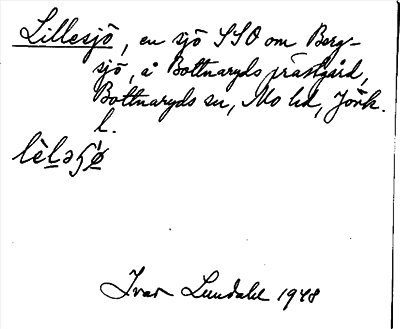 Lillesjö, en sjö SSO om Berg-
sjö, å Bottnaryds prästgård,
Bottnaryds sn, Mo hd, Jönk.
l.
Ivar Lundahl 1948